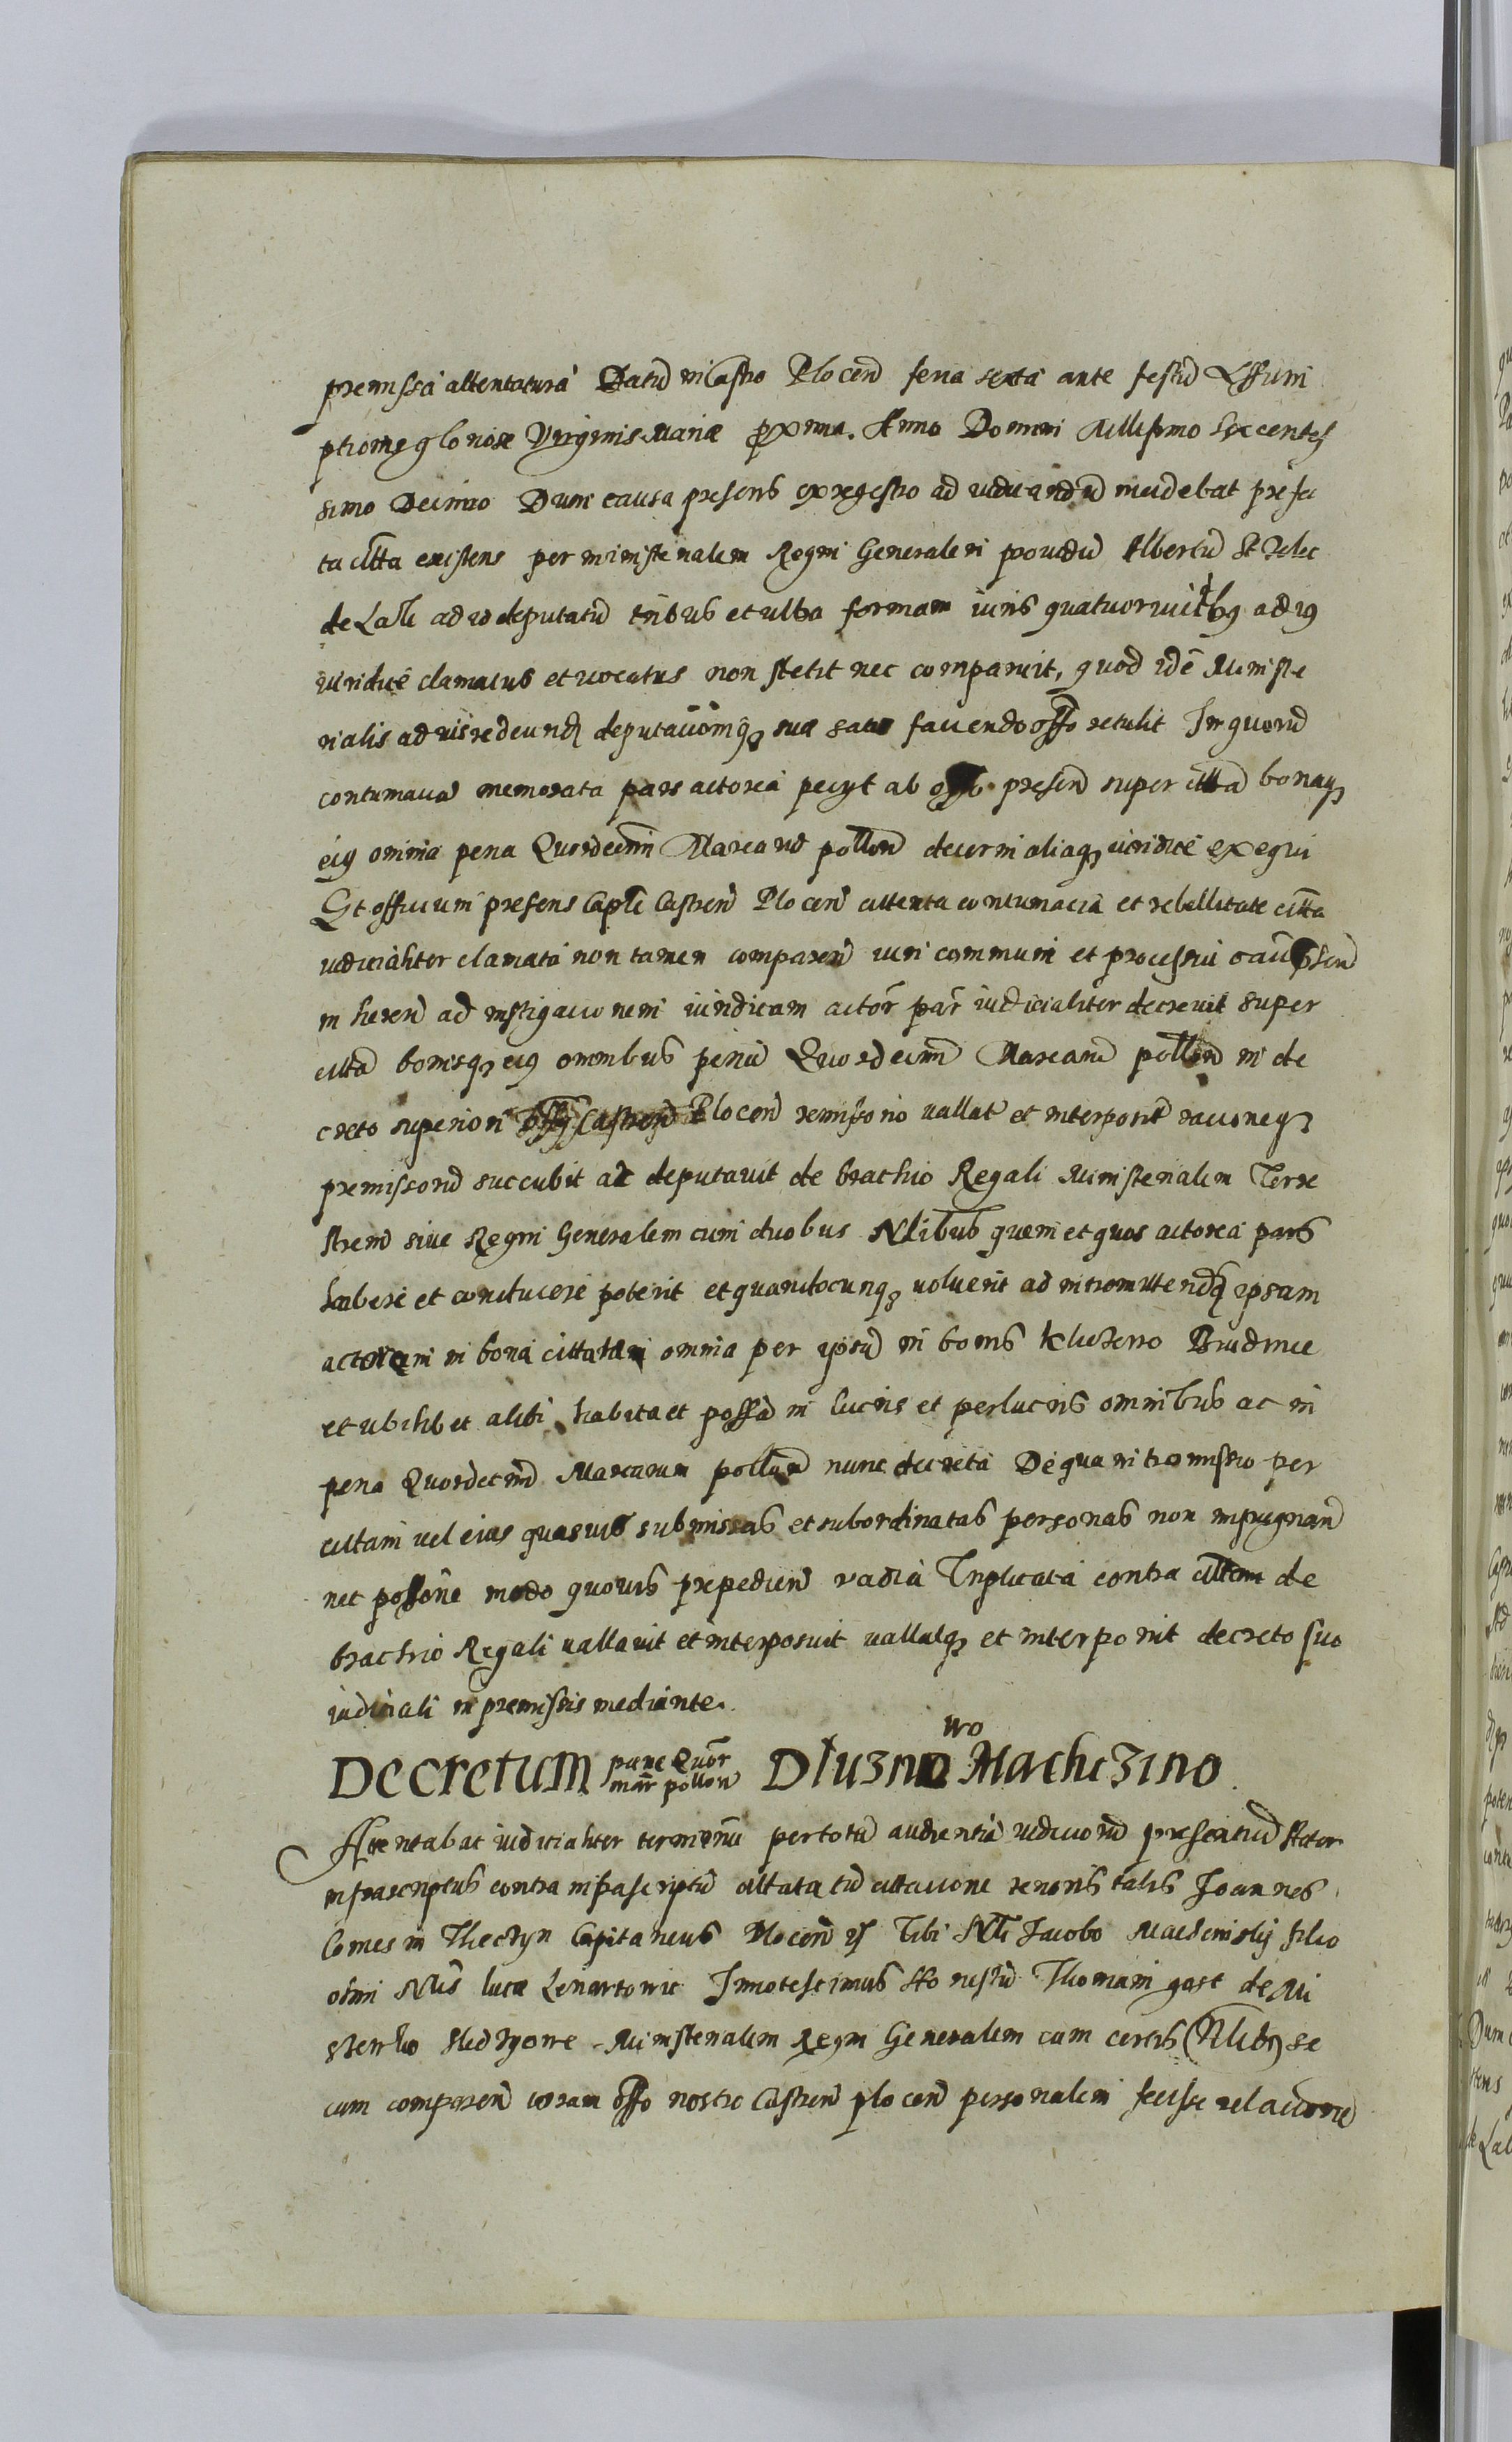 premissa attentatura Datū in Castro Plocen̄ feria sexta ante festū Assum
ptionis gloriosæ Virginis Mariæ proxima. Anno Domini Millesimo Sexcentes
simo Decimo Dum causa presens ex regestro ad iudicandū incidebat prefa
ta citta existens per ministerialem Regni Generalem providū Albertū Strelec
de Lassi ad id deputatū tribus et ultra formam iuris quatuor vicibq ad iq
iuridice clamatus et vocatus non stetit nec comparuit, quod idē Ministe
rialis ad iudicedeund deputationiq suæ satis faciendo offo retulit In quorū
contumacia memorata pars actorea petyt ab offo presen̄ super citta bonaq
eiq omnia pena Quordecim Marcarū pollon̄ decerni aliaq iuridice exequi
Et officium presens Caplē Castren̄ Plocen̄ attenta contumacia et rebellitate citta
iudicialiter clamata non tamen comparen̄ iuri communi et processui causæ presen̄
inheren̄ ad instigationem iuridicam actor̄ par̄ iudicialiter decrevit super
citta bonisq eiq omnibus penā Quordecim Marcarū pollon̄ in de
creto superiori offy Castren̄ Plocen̄ remissorio vallat et interposit rationeq
premissorū succubit ac deputavit de brachio Regali Ministerialem Terre
strem sive Regni Generalem cum duobus Nlibus quem et quos actorea pars
habere et conducere poterit et quandocunq voluerit ad intromittendq ipsam
actoream in bona cittatam omnia per ipsū in bonis Kluczewo Brudnice
et ubilibet alibi habita et possa in lucris et perlucris omnibus ac in
pena Quordecim Marcarum pollon̄ nunc decreta De qua intromissio per
cittam vel eius quasvis submissas et subordinatas personas non impugnan̄
nec possōne modo quovis prepedien̄ vadia Triplicata contra cittam de
brachio Regali vallavit et interposuit vallatq et interponit decreto suo
iudiciali in premissis mediante.
Decretum pœne Quor̄ mar̄ pollon̄ Dłuzniowo Machczino
Attentabat iudicialiter terminū per totū audientiā iudiciorū presentiū Actor
infrascriptus contra infrascriptū cittatū cittatione tenoris talis Joannes
Comes in Thectyn Capitaneus Plocen̄ Tibi Nli Jacobo filio
olim Nlis Lucæ Lenartowic Innotescimus Honestū Thomam de Mi
Ministerialem Regni Generalem cum certis Nlibq se
cum comparen̄ coram offo nostro Castren̄ Plocen̄ personalem fecisse relationē